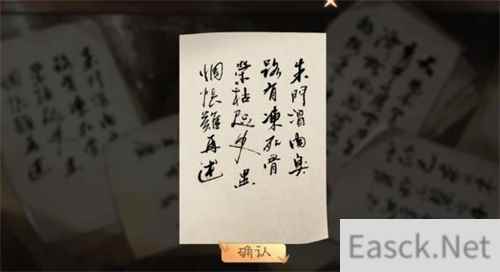 朱門酒肉臭
路有凍死骨
榮枯咫尺異
惆悵難再述
确认
Easck.Net